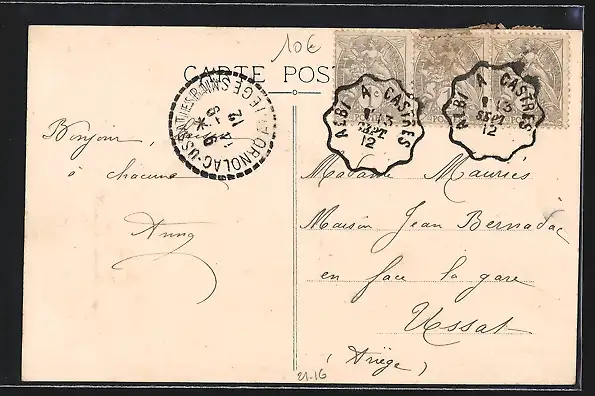 10€
CARTE POS
ALBI A CASTRES
13
SEPT
12
ALBI A CASTRES
13
SEPT
12
ORNOLAC-USSAT-LES-BAINS
ARIEGE
12
Bonjour
à chacune
Anna
Madame Mauriès
Maison Jean Bernadac
en face la gare
Ussat
(Ariège)
21-16